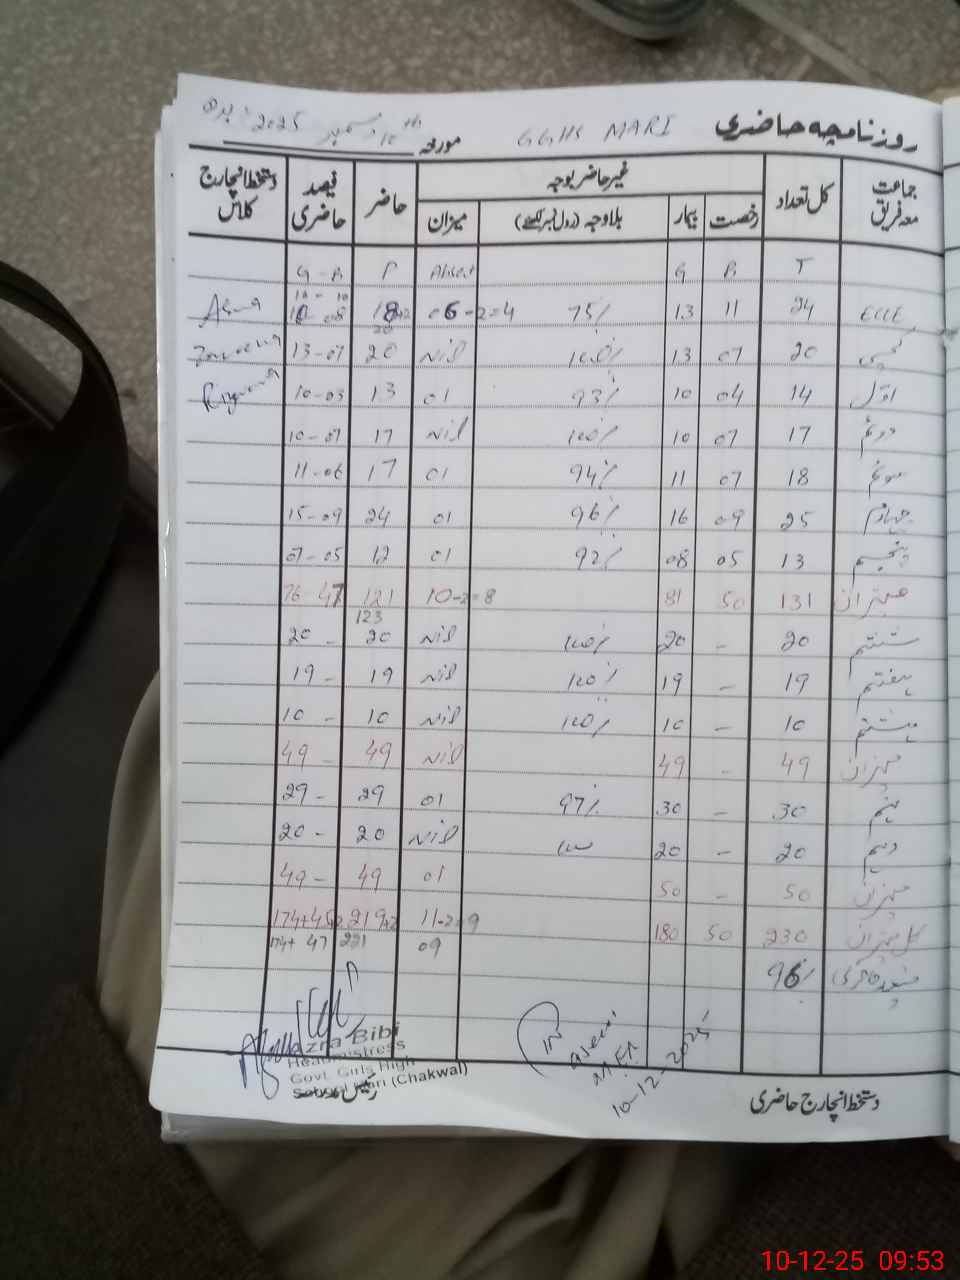 روزنامچہ حاضری GGHS MARI مورخہ 10th دسمبر 2025 بدھ
جماعت معہ فریق کل تعداد غیر حاضر بوجہ حاضر فیصد حاضری دستخط انچارج کلاس
رخصت بیمار بلاوجہ (رول نمبر لکھئے) میزان
T B G Absent P G - B
ECCE 24 11 13 75% 06-2=4 18+2 20 10 - 08 10 - 10 Asma
کچی 20 07 13 100% Nil 20 13-07
اول 14 04 10 93% 01 13 10-03
دوئم 17 07 10 100% Nil 17 10-07
سوئم 18 07 11 94% 01 17 11-06
چہارم 25 09 16 96% 01 24 15-09
پنجم 13 05 08 92% 01 12 07-05
میزان 131 50 81 10-2=8 121 123 76-47
ششم 20 - 20 100% Nil 20 20 -
ہفتم 19 - 19 100% Nil 19 19 -
ہشتم 10 - 10 100% Nil 10 10 -
میزان 49 - 49 Nil 49 49 -
نہم 30 - 30 97% 01 29 29 -
دہم 20 - 20 Nil 20 20 -
میزان 50 - 50 01 49 49 -
کل میزان 230 50 180 11-2=9 219+2 174+45+2
09 221 174+47
فیصد حاضری 96%
Bibi
Headmistress
Govt. Girls High
School Mari (Chakwal)
رئیس مدرسہ
MEA
10-12-2025
دستخط انچارج حاضری
10-12-25 09:53